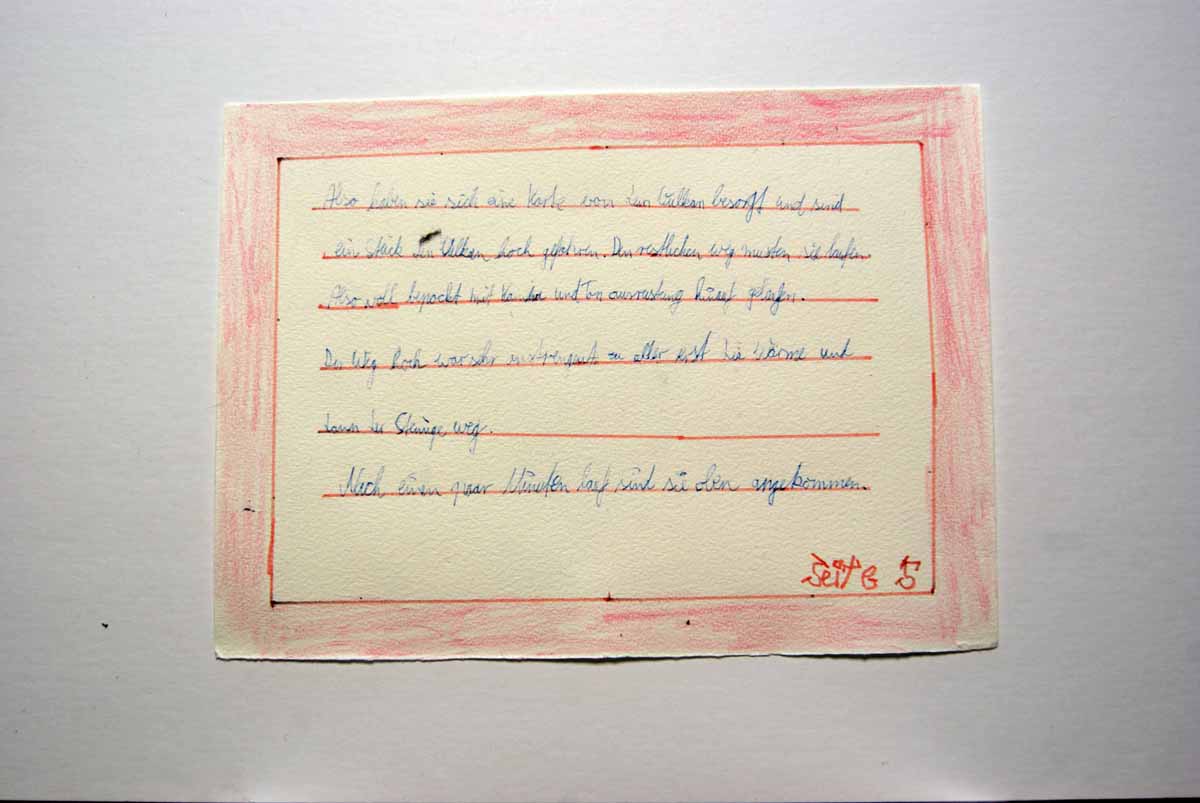 Also haben sie sich eine Karte von den Vulkan besorgt und sind
ein Stück den Vulkan hoch gefahren. Den restlichen weg musten sie laufen.
Also voll bepackt mit und Ton ausrustung gelaufen.
Der Weg hoch war sehr zu aller erst die Wärme und
dann der Steinige weg.
Nach einen paar Minuten lauf sind sie oben angekommen.
Seite 5